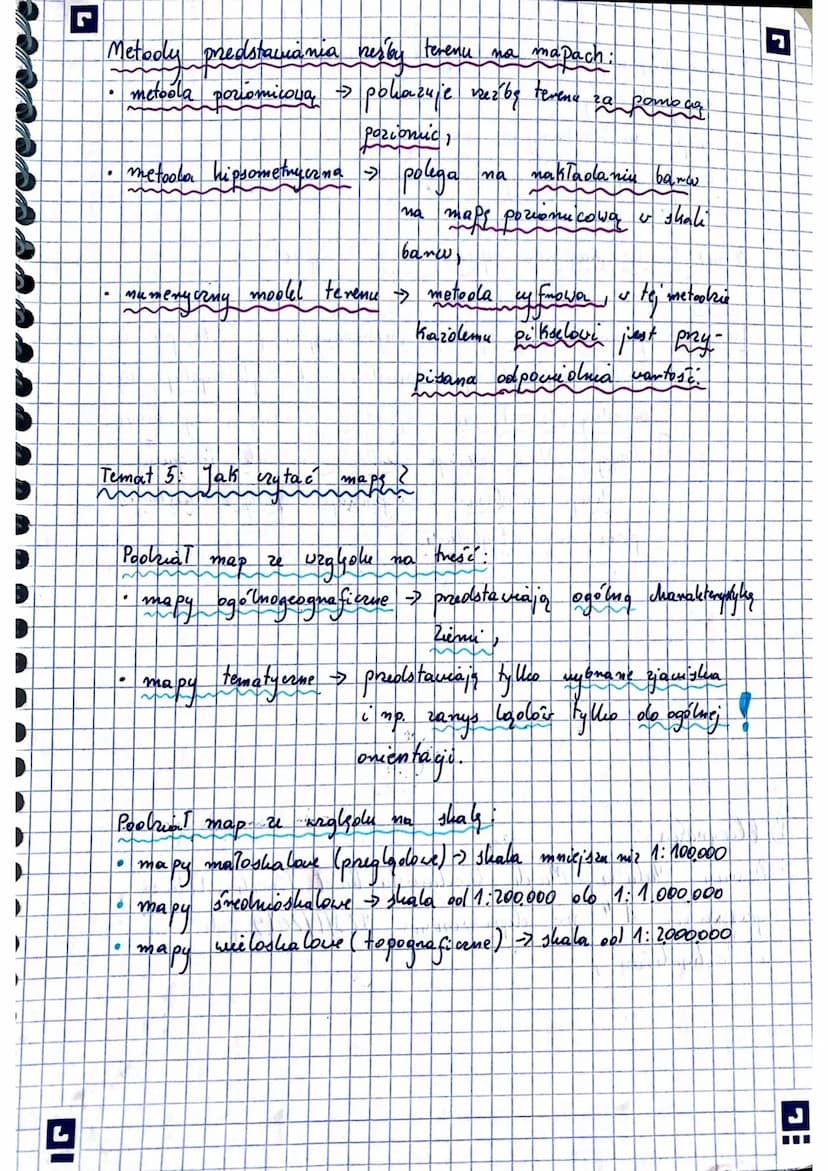 Metody przedstawiania rzeźby terenu na mapach:
• metoda poziomicowa → pokazuje rzeźbę terenu za pomocą
poziomic,
• metoda hipsometryczna → polega na nakładaniu barw
na mapę poziomicową w skali
barw,
• numeryczny model terenu → metoda cyfrowa, w tej metodzie
każdemu pikselowi jest przy-
pisana odpowiednia wartość.
Temat 5: Jak czytać mapę?
Podział map ze względu na treść:
• mapy ogólnogeograficzne → przedstawiają ogólną charakterystykę
Ziemi,
• mapy tematyczne → przedstawiają tylko wybrane zjawiska
i np. zarys lądów tylko do ogólnej !
orientacji.
Podział map ze względu na skalę:
• mapy małoskalowe (przeglądowe) → skala mniejsza niż 1:100.000
• mapy średnioskalowe → skala od 1:200.000 do 1:1.000.000
• mapy wieloskalowe (topograficzne) → skala od 1:2000.000